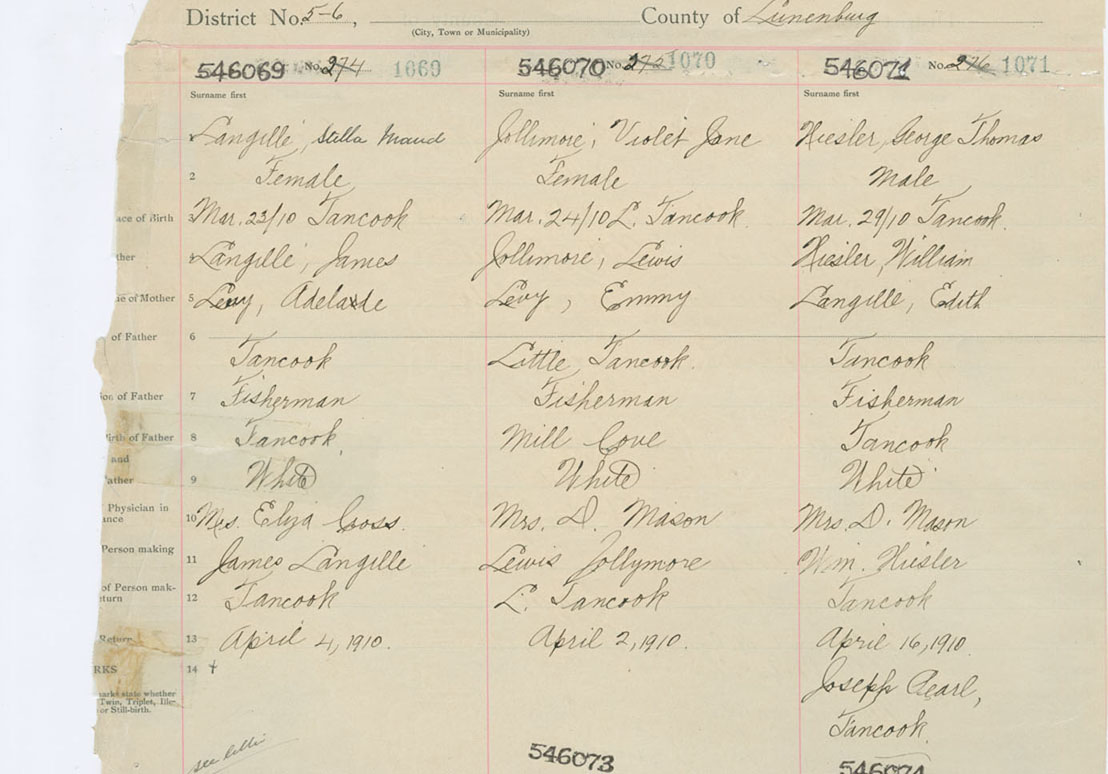 District No. 5-6, County of Lunenburg
(City, Town or Municipality)
546069 No. 274 1069 546070 No. 1070 546071 No. 276 1071
Surname first Surname first Surname first
1 Langille, Stella Maud Jollimore, Violet Jane Hiesler, George Thomas
2 Female Female Male
ace of Birth 3 Mar. 23/10 Tancook Mar. 24/10 L. Tancook. Mar. 29/10 Tancook.
ther 4 Langille, James Jollimore, Lewis Hiesler, William
ne of Mother 5 Levy, Adelaide Levy, Emmy Langille, Edith
of Father 6 Tancook Little Tancook. Tancook
ion of Father 7 Fisherman Fisherman Fisherman
Birth of Father 8 Tancook Mill Cove Tancook
and
ather 9 White White White
Physician in
ance 10 Mrs. Eliza Cross. Mrs. D. Mason Mrs. D. Mason
Person making
11 James Langille Lewis Jollymore Wm. Hiesler
of Person mak-
turn 12 Tancook L. Tancook Tancook
Return 13 April 4, 1910. April 2, 1910. April 16, 1910.
RKS 14 † Joseph Pearl,
marks state whether
Twin, Triplet, Ille-
or Still-birth.
Tancook.
see
546073 546074